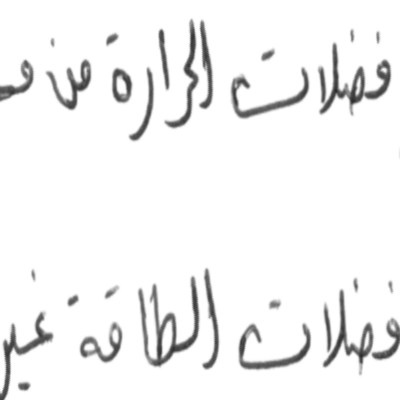 فضلات الحرارة من
فضلات الطاقة غير